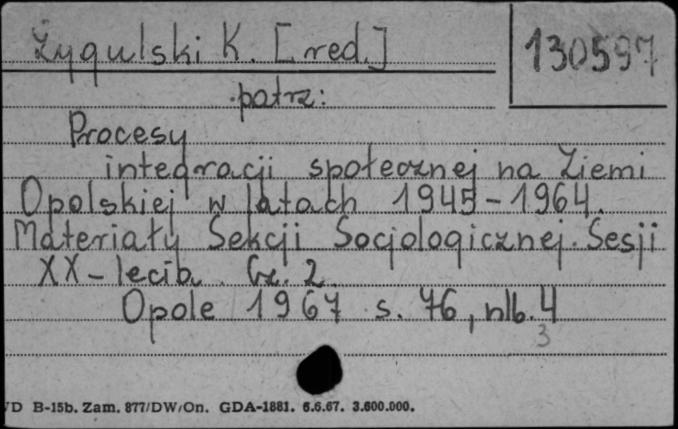 Żygulski K. [red.]
130597
patrz:
Procesy
integracji społecznej na Ziemi
Opolskiej w latach 1945-1964.
Materiały Sekcji Socjologicznej Sesji
XX-lecia. Cz. 2.
Opole 1967 s. 76, nlb. 4
3
D B-15b. Zam. 877/DW/On. GDA-1881. 6.6.67. 3.600.000.